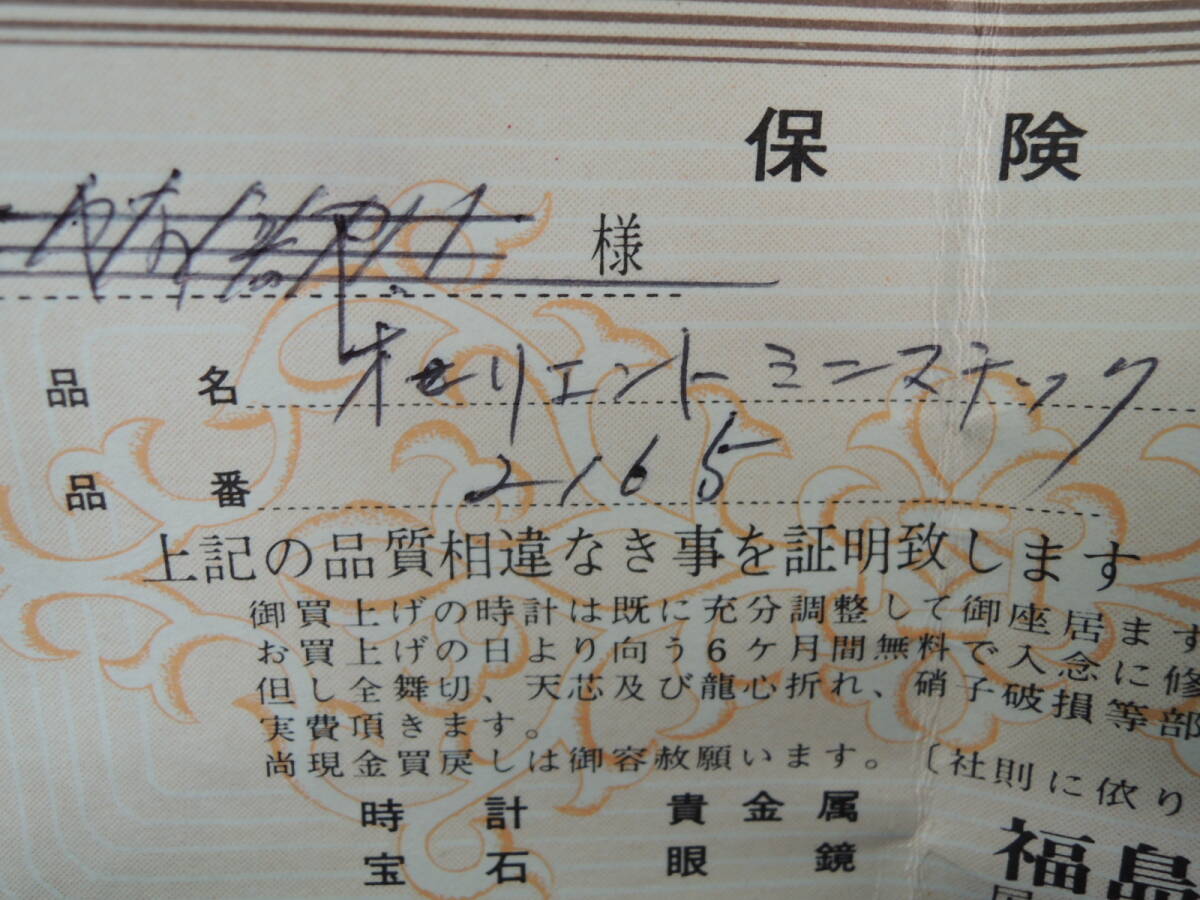 保 険
様
品 名 オリエントミニステック
品 番 2165
上記の品質相違なき事を証明致します
御買上げの時計は既に充分調整して御座居ます
お買上げの日より向う6ヶ月間無料で入念に修
但し全舞切、天芯及び龍心折れ、硝子破損等部
実費頂きます。
尚現金買戻しは御容赦願います。〔社則に依り
時 計 貴金属
宝 石 眼 鏡
福島